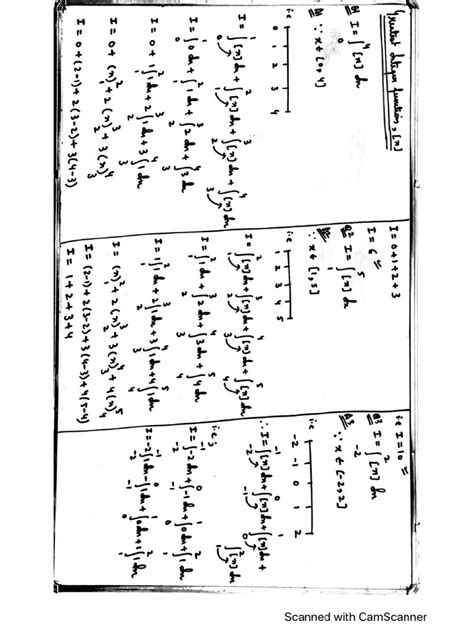 Greatest Integer function, [x]
Q1 I = ∫₀⁴ [x] dx
A1 ∵ x ∈ [0, 4]
i.e 0 1 2 3 4
I = ∫₀¹ [x] dx + ∫₁² [x] dx + ∫₂³ [x] dx + ∫₃⁴ [x] dx
I = ∫₀¹ 0 dx + ∫₁² 1 dx + ∫₂³ 2 dx + ∫₃⁴ 3 dx
I = 0 + 1∫₁² 1 dx + 2∫₂³ 1 dx + 3∫₃⁴ 1 dx
I = 0 + (x)₁² + 2 (x)₂³ + 3 (x)₃⁴
I = 0 + (2-1) + 2(3-2) + 3(4-3)
I = 0+1+2+3
I = 6
Q2 I = ∫₁⁵ [x] dx
∵ x ∈ [1, 5]
i.e 1 2 3 4 5
I = ∫₁² [x] dx + ∫₂³ [x] dx + ∫₃⁴ [x] dx + ∫₄⁵ [x] dx
I = ∫₁² 1 dx + ∫₂³ 2 dx + ∫₃⁴ 3 dx + ∫₄⁵ 4 dx
I = 1∫₁² 1 dx + 2∫₂³ 1 dx + 3∫₃⁴ 1 dx + 4∫₄⁵ 1 dx
I = (x)₁² + 2 (x)₂³ + 3 (x)₃⁴ + 4 (x)₄⁵
I = (2-1) + 2(3-2) + 3(4-3) + 4(5-4)
I = 1 + 2 + 3 + 4
i.e I = 10
Q3 I = ∫₋₂² [x] dx
A3 ∵ x ∈ [-2, 2]
-2 -1 0 1 2
∴ I = ∫₋₂⁻¹ [x] dx + ∫₋₁⁰ [x] dx + ∫₀¹ [x] dx +
∫₁² [x] dx
i.e,
I = ∫₋₂⁻¹ -2 dx + ∫₋₁⁰ -1 dx + ∫₀¹ 0 dx + ∫₁² 1 dx
I = -2∫₋₂⁻¹ 1 dx - ∫₋₁⁰ 1 dx + ∫₀¹ 0 dx + ∫₁² 1 dx
Scanned with CamScanner